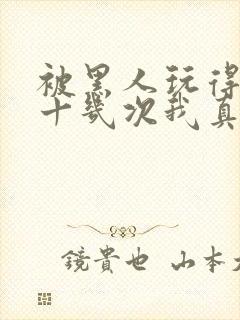 被黑人玩得
十几次我真
鏡貴也 山本